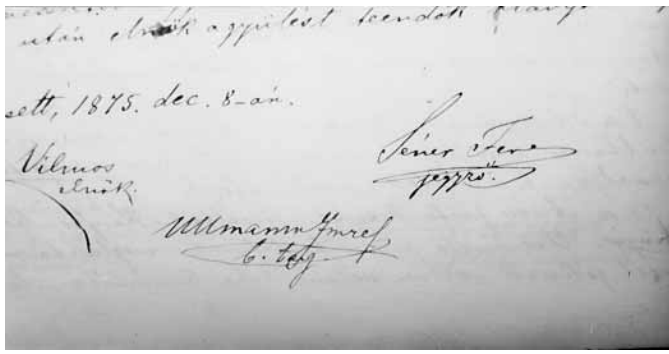 után elnök a gyűlést teendők hiánya
sett, 1875. dec. 8-án.
Vilmos
elnök.
Séner Fere
jegyző.
Ullmann Imre
b. tag.